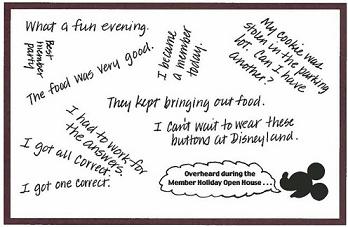 What a fun evening.
Best
member
party
The food was very good.
I became
a member
today.
My cookie was
stolen in the parking
lot. Can I have
another?
They kept bringing out food.
I can't wait to wear these
buttons at Disneyland.
I had to work for
the answers.
I got all correct.
I got one correct.
Overheard during the
Member Holiday Open House . . .